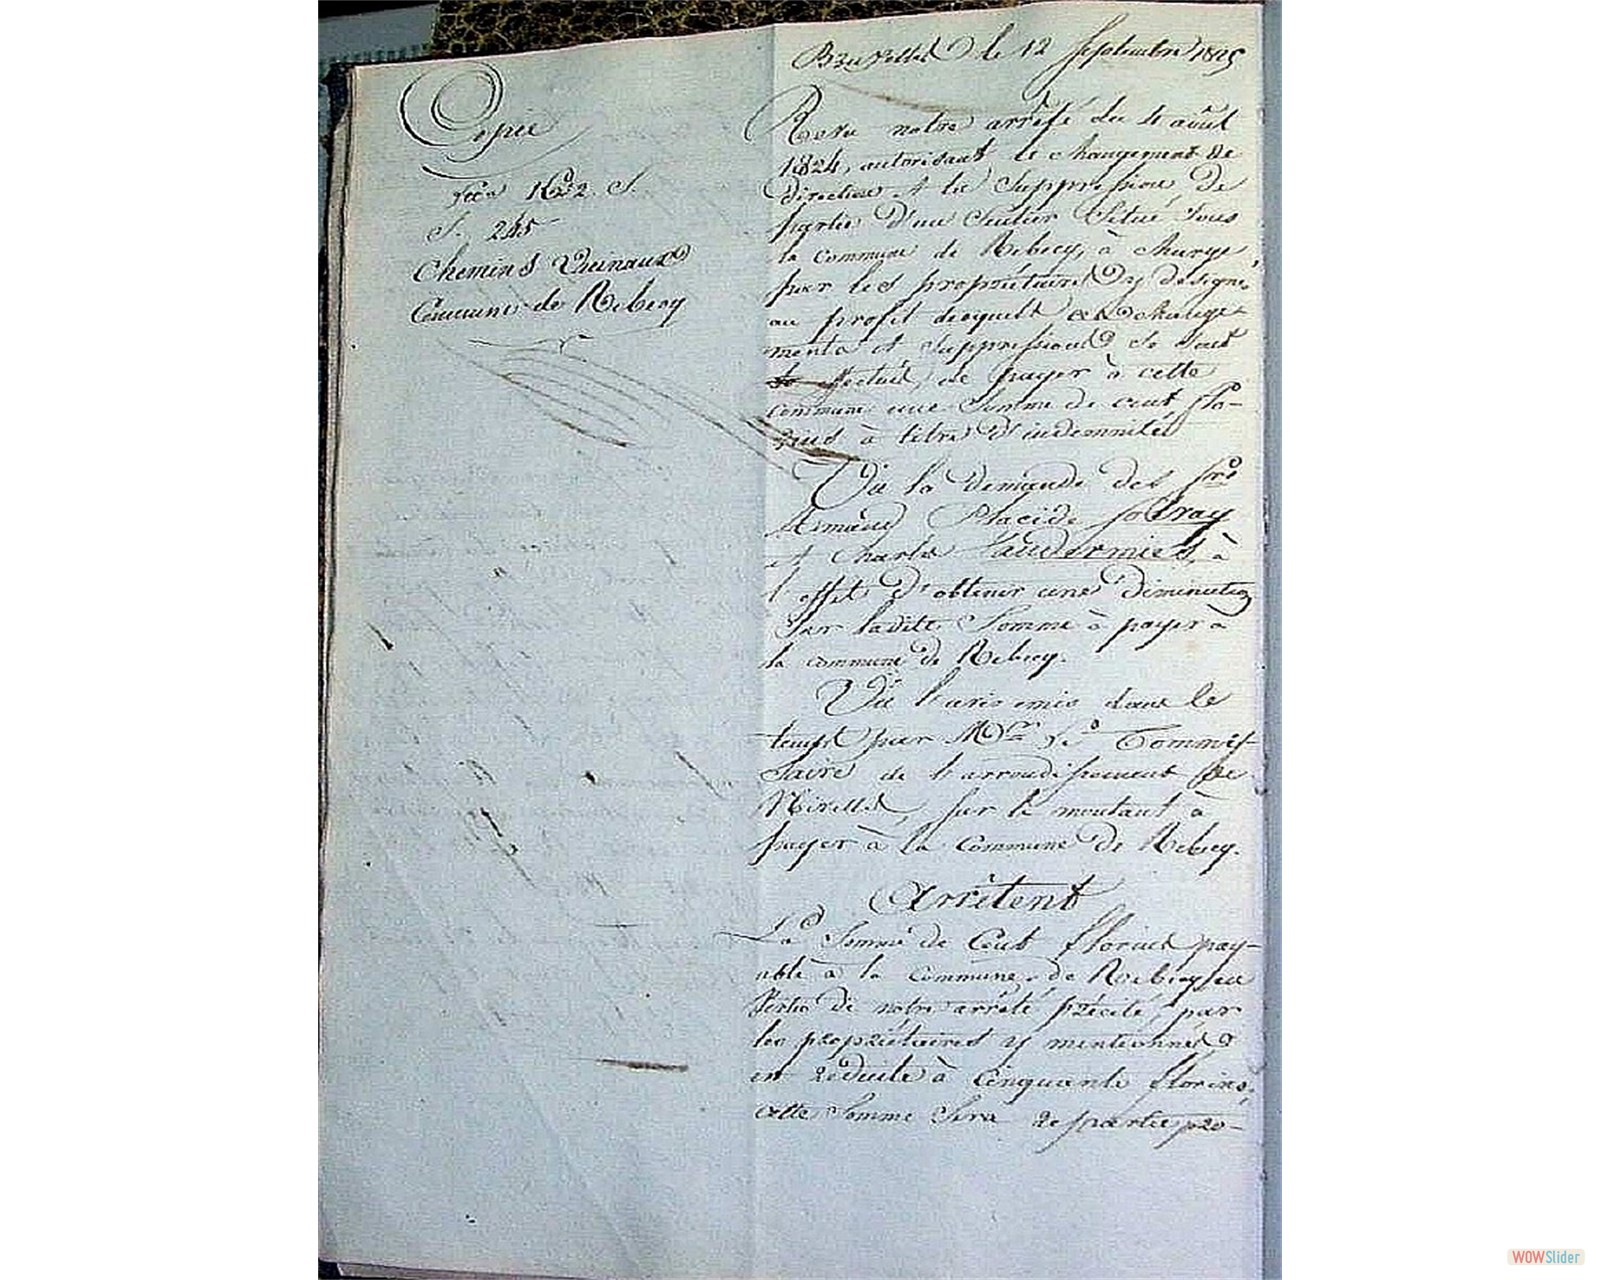 Copie
S. 245
Chemins Vicinaux
Commune de Rebecq
Bruxelles le 12 Septembre 1825
Revu notre arrêté du 4 août
1824, autorisant le changement de
direction et la Suppression de
partie d'un Sentier Situé Sous
la commune de Rebecq, à charge,
par les propriétaires y designés
au profit desquels ces change-
ments et Suppressions se sont
effectués, de payer à cette
commune une Somme de cent flo-
rins à titre d'indemnité
Vu la demande des Srs
Amand Placide Solvay
et Charles Vandermies, à
l'effet d'obtenir une diminution
Sur ladite Somme à payer à
la commune de Rebecq.
Vu l'avis émis dans le
temps par Mr le Commis-
saire de l'arrondissement de
Nivelles, sur le montant à
payer à la Commune de Rebecq.
Arrêtent
La Somme de Cent florins pay-
able à la Commune de Rebecq en
Vertu de notre arrêté précité, par
les propriétaires y mentionnés
est réduite à Cinquante florins,
cette Somme Sera repartie pro-
WOWSlider